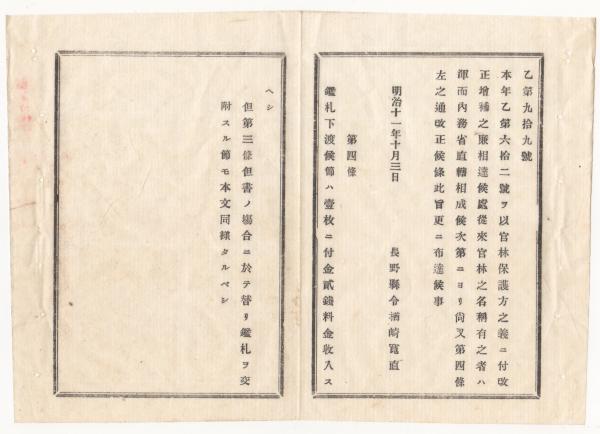 乙第九拾九號
本年乙第六拾二號ヲ以官林保護方之義ニ付改
正增補之廉相達候處從來官林之名稱有之者ハ
渾而內務省直轄相成候次第ニヨリ尙又第四條
左之通改正候條此旨更ニ布達候事
明治十一年十月三日 長野縣令楢崎寬直
第四條
鑑札下渡候節ハ壹枚ニ付金貳錢料金收入ス
ヘシ
但第三條但書ノ塲合ニ於テ替リ鑑札ヲ交
附スル節モ本文同樣タルベシ